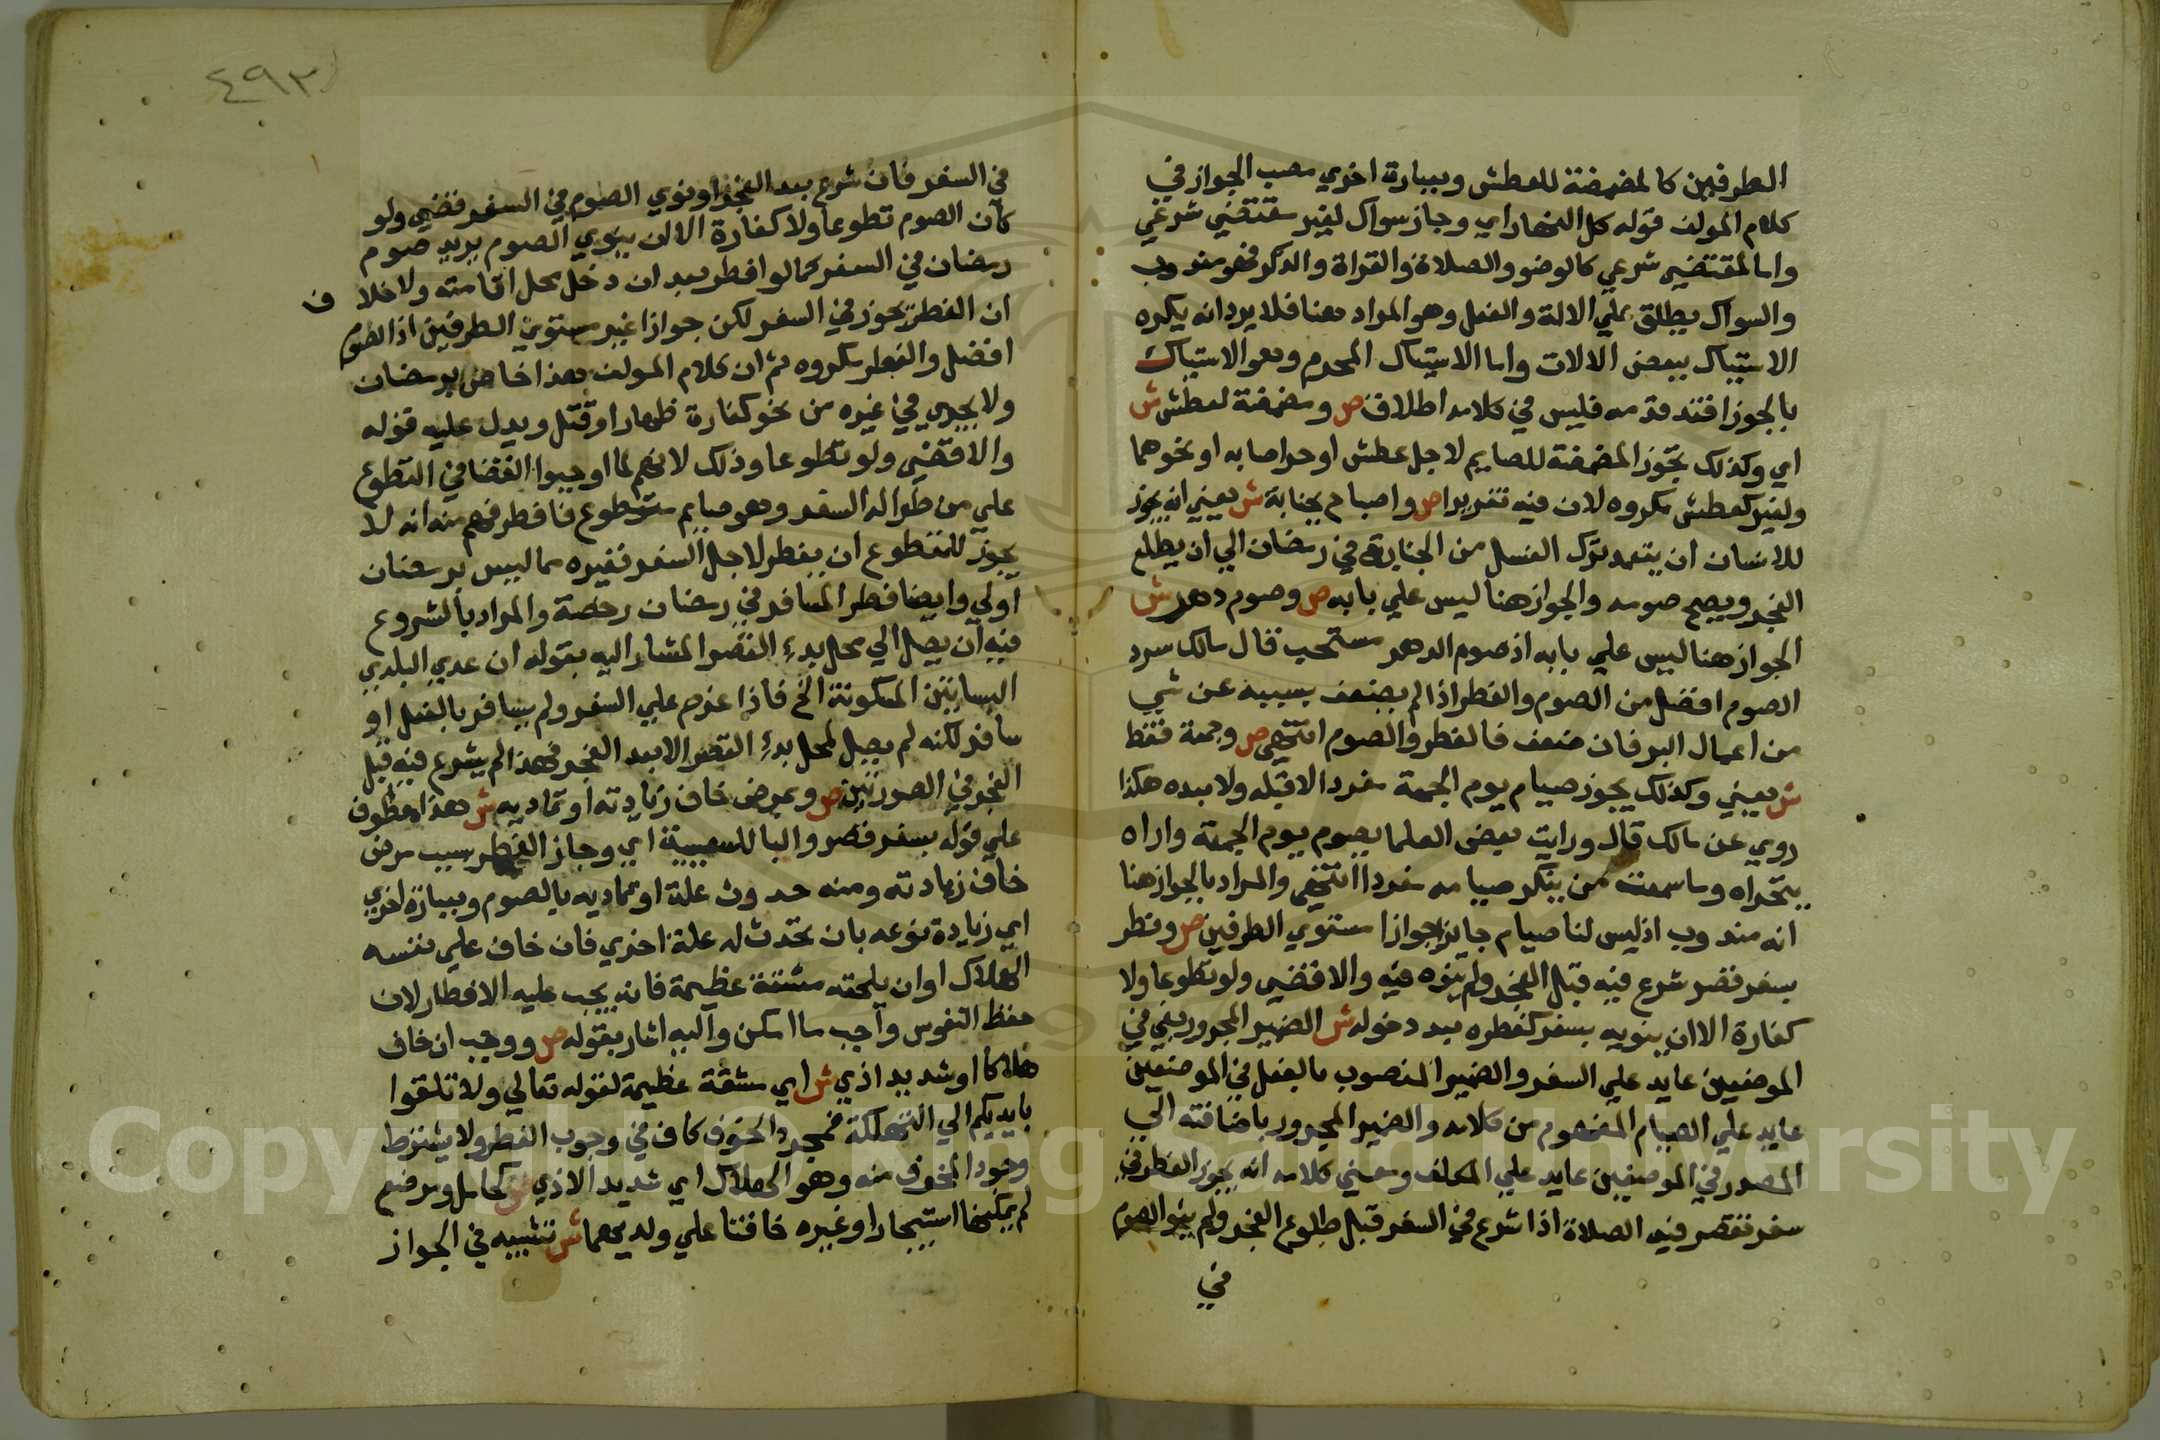 الطرفين كالمضمضة للعطش وبعبارة اخري مصب الجواز في
كلام المولف قوله كل النهار اي وجاز سواك لغير مقتضي شرعي
واما لمقتضي شرعي كالوضو والصلاة والقراة والذكر فهو مندوب
والسواك يطلق علي الالة والفعل وهو المراد هنا فلا يرد انه يكره
الاستياك ببعض الالات واما الاستياك المحرم وهو الاستياك
بالجوزا فقد قدمه فليس في كلامه اطلاق ص ومضمضة لعطش ش
اي وكذلك تجوز المضمضة للصايم لاجل عطش او حر اصابه او نحوهما
ولغير كعطش مكروه لان فيه تغريرا ص واصباح بجنابة ش يعني انه يجوز
للانسان ان يتعمد ترك الغسل من الجنابة في رمضان الي ان يطلع
الفجر ويصح صومه والجواز هنا ليس علي بابه ص وصوم دهر ش
الجواز هنا ليس علي بابه اذ صوم الدهر مستحب قال مالك سرد
الصوم افضل من الصوم والفطر اذا لم يضعف بسببه عن شي
من اعمال البر فان ضعف فالفطر والصوم انتهي ص وجمعة فقط
ش يعني وكذلك يجوز صيام يوم الجمعة مفردا لا قبله ولا بعده هكذا
روي عن مالك قال ورايت بعض العلما يصوم يوم الجمعة واراه
يتحراه وما سمعت من ينكر صيامه مفردا انتهي والمراد بالجواز هنا
انه مندوب اذ ليس لنا صيام جايز جوازا مستوي الطرفين ص وفطر
بسفر قصر شرع فيه قبل الفجر ولم ينوه فيه والا قضي ولو تطوعا ولا
كفارة الا ان ينويه بسفر كفطره بعد دخوله ش الضمير المجرور بفي في
الموضعين عايد علي السفر والضمير المنصوب بالفعل في الموضعين
عايد علي الصيام المفهوم من كلامه والضمير المجرور باضافته الي
المصدر في الموضعين عايد علي المكلف ومعني كلامه انه يجوز الفطر في
سفر تقصر فيه الصلاة اذا شرع في السفر قبل طلوع الفجر ولم ينو الصوم
في
٤٩٣
في السفر فان شرع بعد الفجر او نوي الصوم في السفر فقضي ولو
كان الصوم تطوعا ولا كفارة الا ان ينوي الصوم يريد صوم
رمضان في السفر كما لو افطر بعد ان دخل محل اقامته ولا خلاف
ان الفطر يجوز في السفر لكن جوازا غير مستوي الطرفين اذ الصوم
افضل والفطر مكروه ثم ان كلام المولف هذا خاص برمضان
ولا يجري في غيره من نحو كفارة ظهار او قتل ويدل عليه قوله
والا قضي ولو تطوعا وذلك لانهم لما اوجبوا القضا في التطوع
علي من طرا له السفر وهو صايم متطوع فافطر فهم منه انه لا
يجوز للمتطوع ان يفطر لاجل السفر فغيره مما ليس برمضان
اولي وايضا فطر المسافر في رمضان رخصة والمراد بالشروع
فيه ان يصل الي محل بدء القصر المشار اليه بقوله ان عدي البلدي
البساتين المسكونة الخ فاذا عزم علي السفر ولم يسافر بالفعل او
سافر لكنه لم يصل لمحل بدء القصر الا بعد الفجر فهذا لم يشرع فيه قبل
الفجر في الصورتين ص وبمرض خاف زيادته او تماديه ش هذا معطوف
علي قوله بسفر قصر والبا للسببية اي وجاز الفطر بسبب مرض
خاف زيادته ومنه حدوث علة او تماديه بالصوم وبعبارة اخري
اي زيادة نوعه بان تحدث له علة اخري فان خاف علي نفسه
الهلاك او ان يلحقه مشقة عظيمة فانه يجب عليه الافطار لان
حفظ النفوس واجب ما امكن واليه اشار بقوله ص ووجب ان خاف
هلاكا او شديد اذي ش اي مشقة عظيمة لقوله تعالي ولا تلقوا
بايديكم الي التهلكة فمجرد الخوف كاف في وجوب الفطر ولا يشترط
وجود المخوف منه وهو الهلاك اي شديد الاذي ص كحامل ومرضع
لم يمكنها استيجار او غيره خافتا علي ولديهما ش تشبيه في الجواز
Copyright © King Saud University